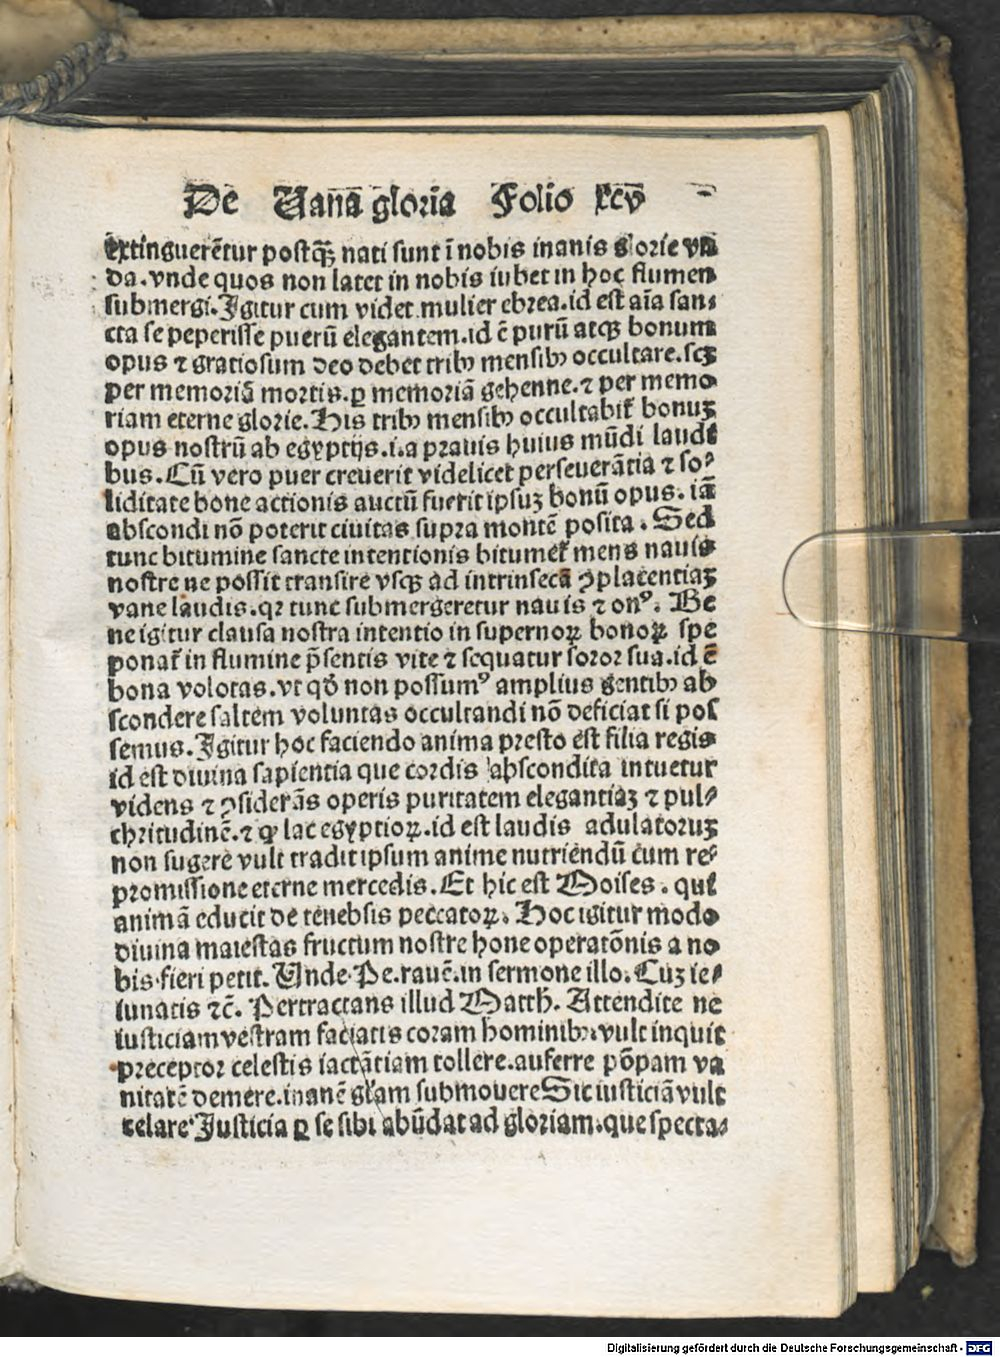 De Uana gloria Folio xcv
extinguerētur postq̄ꝫ nati sunt ī nobis inanis glorie vn
da. vnde quos non latet in nobis iubet in hoc flumen
submergi. Igitur cum videt mulier ebrea. id est aīa san⸗
cta se peperisse puerū elegantem. id ē purū atqꝫ bonum
opus ⁊ gratiosum deo debet tribꝰ mensibꝰ occultare. scꝫ
per memoriā mortis. ꝑ memoriā gehenne. ⁊ per memo
riam eterne glorie. His tribꝰ mensibꝰ occultabit᷑ bonuꝫ
opus nostrū ab egyptijs. i. a prauis huius mūdi laudi
bus. Cū vero puer creuerit videlicet perseuerātia ⁊ so⸗
liditate bone actionis auctū fuerit ipsuꝫ bonū opus. iā
abscondi nō poterit ciuitas supra montē posita. Sed
tunc bitumine sancte intentionis bitumet᷑ mens nauis
nostre ne possit transire vsqꝫ ad intrinsecā ꝯplacentiaꝫ
vane laudis. qꝛ tunc submergeretur nauis ⁊ onꝰ. Be
ne igitur clausa nostra intentio in supernoꝝ bonoꝝ spe
ponat᷑ in flumine p̄sentis vite ⁊ sequatur soror sua. id ē
bona volūtas. vt qd̄ non possumꝰ amplius gentibꝰ ab
scondere saltem voluntas occultandi nō deficiat si pos
semus. Igitur hoc faciendo anima presto est filia regis
id est diuina sapientia que cordis abscondita intuetur
videns ⁊ ꝯsiderās operis puritatem elegantiaꝫ ⁊ pul⸗
chritudinē. ⁊ ꝙ lac egyptioꝝ. id est laudis adulatoruꝫ
non sugere vult tradit ipsum anime nutriendū cum re⸗
promissione eterne mercedis. Et hic est Moises. qui
animā educit de tenebris peccatoꝝ. Hoc igitur modo
diuina maiestas fructum nostre bone operatōnis a no
bis fieri petit. Unde Pe. rauē. in sermone illo. Cuꝫ ie⸗
iunatis ⁊c̄. Pertractans illud Matth. Attendite ne
iusticiam vestram faciatis coram hominibꝰ. vult inquit
preceptor celestis iactātiam tollere. auferre pōpam va
nitatē demere. inanē glām submouere Sic iusticiā vult
celare Justicia ꝑ se sibi abūdat ad gloriam. que specta⸗
Digitalisierung gefördert durch die Deutsche Forschungsgemeinschaft - DFG